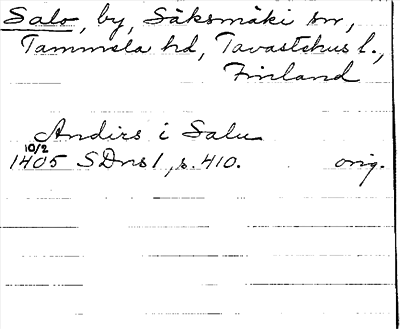 Salo, by, Säksmäki sn,
Tammela hd, Tavastehus l.,
Finland
Andirs i Salu
10/2
1405 SDns 1, s. 410. orig.